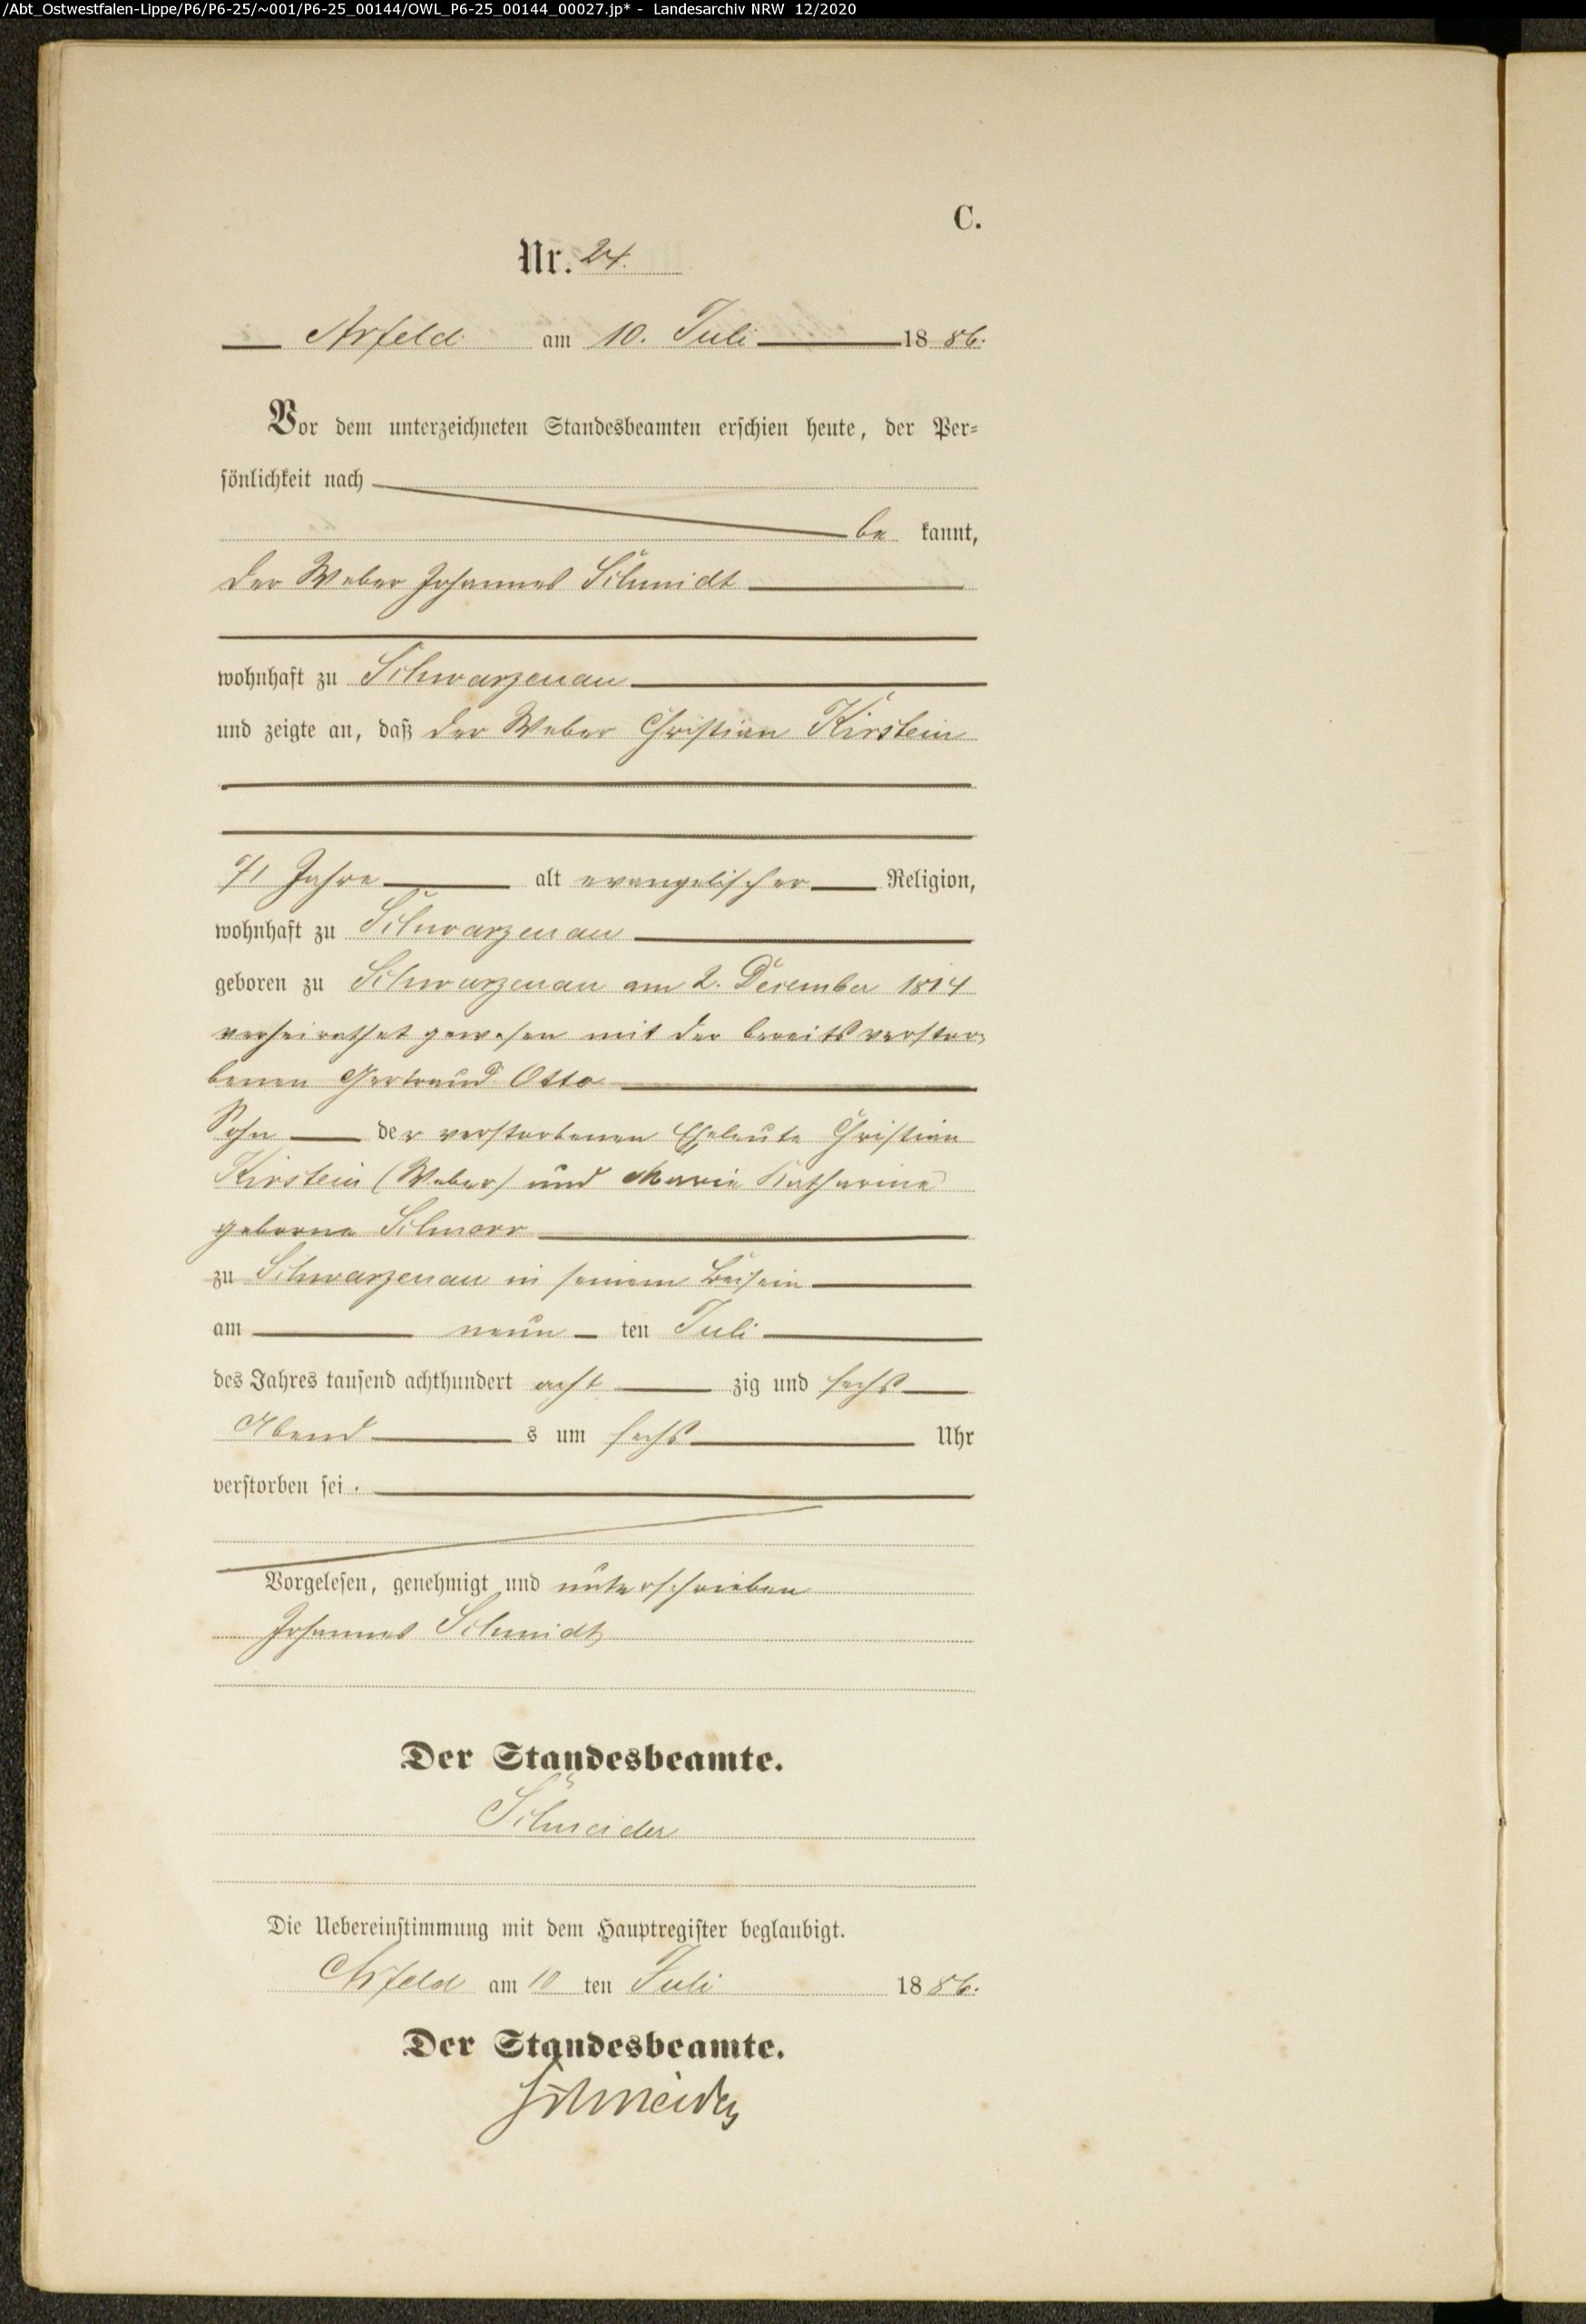 /Abt_Ostwestfalen-Lippe/P6/P6-25/~001/P6-25_00144/OWL_P6-25_00144_00027.jp* - Landesarchiv NRW 12/2020
C.
Nr. 24.
Arfeld am 10. Juli 1886.
Vor dem unterzeichneten Standesbeamten erschien heute, der Per-
sönlichkeit nach
be kannt,
der Weber Johannes Schmidt
wohnhaft zu Schwarzenau
und zeigte an, daß der Weber Christian Kirstein
71 Jahre alt evangelischer Religion,
wohnhaft zu Schwarzenau
geboren zu Schwarzenau am 2. December 1814
verheirathet gewesen mit der bereits verstor-
benen Gertraud Otto
Sohn der verstorbenen Eheleute Christian
Kirstein (Weber) und Marie Katharine
geborne
zu Schwarzenau in seinem Beisein
am neun ten Juli
des Jahres tausend achthundert acht zig und sechs
Abend s um sechs Uhr
verstorben sei.
Vorgelesen, genehmigt und unterschrieben
Johannes Schmidt
Der Standesbeamte.
Schneider
Die Uebereinstimmung mit dem Hauptregister beglaubigt.
Arfeld am 10 ten Juli 1886.
Der Standesbeamte.
Schneider